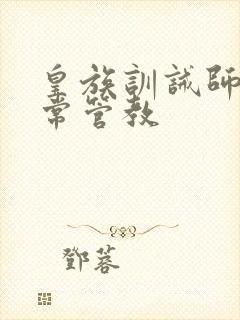 皇族訓誡師
常管教
鄧蓉